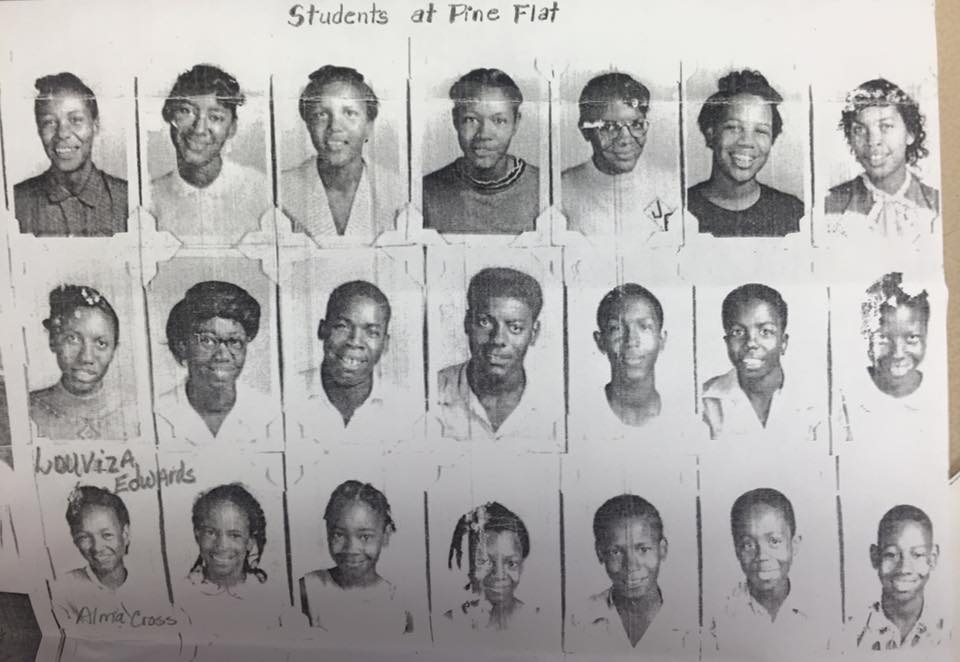 Students at Pine Flat
JF
LOUViZA
EdwArds
Alma Cross